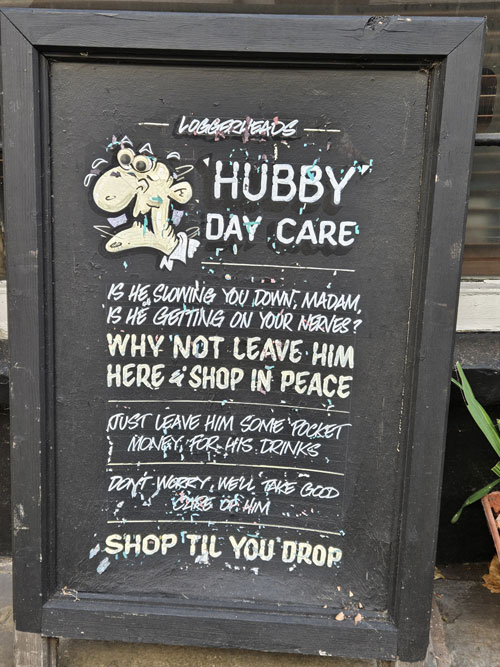 LOGGERHEADS
'HUBBY'
DAY CARE
IS HE SLOWING YOU DOWN, MADAM,
IS HE GETTING ON YOUR NERVES?
WHY NOT LEAVE HIM
HERE & SHOP IN PEACE
JUST LEAVE HIM SOME POCKET
MONEY, FOR HIS DRINKS
DON'T WORRY, WE'LL TAKE GOOD
CARE OF HIM
SHOP 'TIL YOU DROP